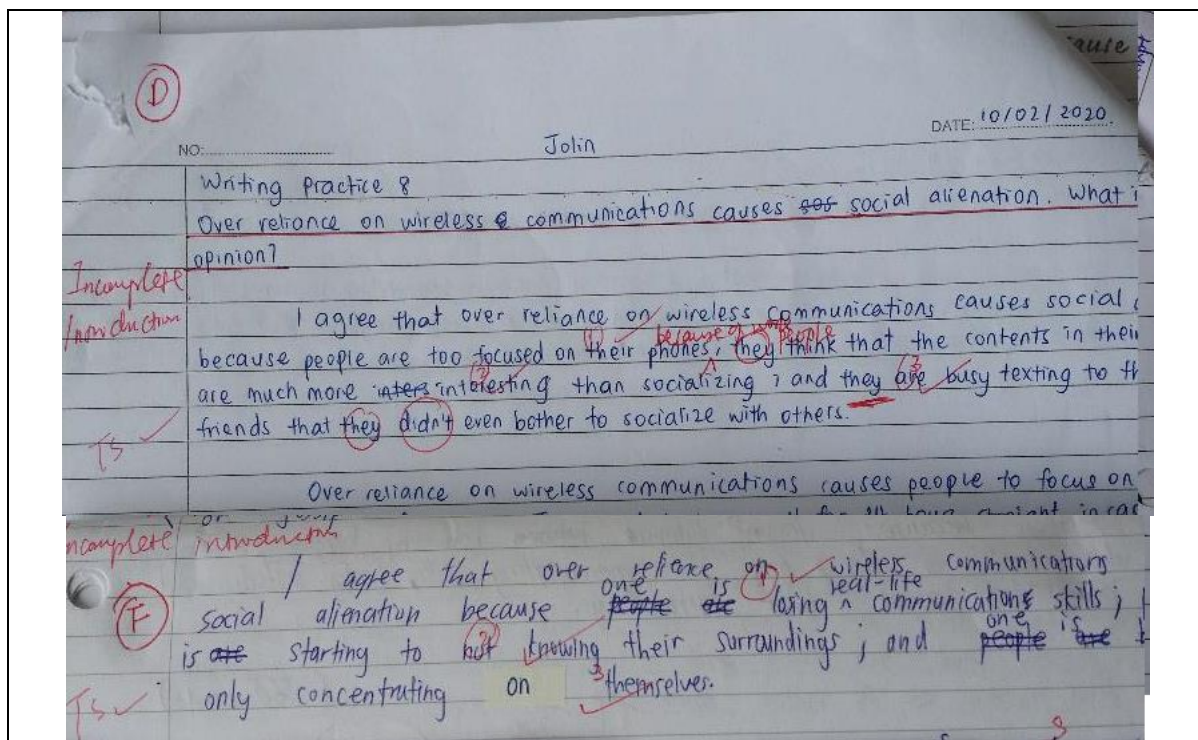 ause
D
DATE: 10/02/2020.
NO:
Jolin
Writing Practice 8
Over reliance on wireless communications causes social alienation. What i
opinion?
Incomplete
Introduction
I agree that over reliance on wireless communications causes social
(1) because of people
because people are too focused on their phones, they think that the contents in their
are much more interesting than socializing ; and they are busy texting to th
friends that they didn't even bother to socialize with others.
TS ✓
Over reliance on wireless communications causes people to focus on
ncomplete introduction
I agree that over reliance on wireless communications
one is real-life
F
social alienation because people are losing communications skills ;
one is
is are starting to not knowing their surroundings ; and people are
only concentrating on themselves.
TS ✓